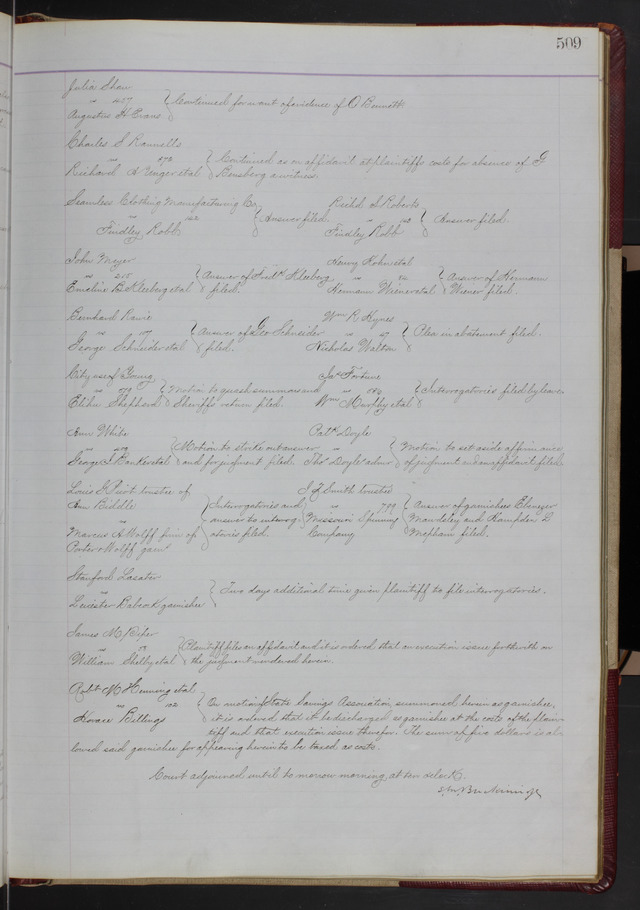 509
Julia Shaw
vs 457 Continued for want of evidence of O Bennett.
Augustus H Evans
Charles S Rannells
vs 272 Continued as on affidavit at plaintiffs costs for absence of G
Richard A Unger et al Rensberg a witness.
Seamless Clothing Manufacturing Co, Richd S Roberts
vs 122 Answer filed. vs 120 Answer filed.
Findley Robb Findley Robb
John Meyer Henry Kohn et al
vs 215 Answer of Fredk Kleeberg vs 82 Answer of Hermann
Emeline B Kleeberg et al filed. Hermann Wiener et al Wiener filed.
Bernhard Ravie Wm R Hynes
vs 117 Answer of Geo Schneider vs 47 Plea in abatement filed.
George Schneider et al filed. Nicholas Walton
City use of Young Jas Fortune
vs Motion to quash summons and vs Interrogatories filed by leave.
Elihu Shepherd Sheriffs return filed. Wm Murphy et al
Ann White Patk Doyle
vs Motion to strike out answer vs Motion to set aside affirmance
George I Bankert et al and for judgment filed. Thos Doyle admr of judgment and an affidavit filed.
Louis G Picot trustee of I J Smith trustee
Ann Biddle Interrogatories and vs 799 Answer of garnishees Ebenezer
vs answer to interrog- Missouri Spinning Mandsley and Hampden L
Marcus A Wolff firm of atories filed. Company Mepham filed.
Porter & Wolff garns
Stanford Lasater
vs Two days additional time given plaintiff to file interrogatories.
Leicester Babcock garnishee
James M Piper
vs Plaintiff files an affidavit and it is ordered that an execution issue forthwith on
William Shelby et al the judgment rendered herein.
Robt M Henning et al
vs 102 On motion of State Savings Association, summoned herein as garnishee,
Horace Billings it is ordered that it be discharged as garnishee at the costs of the plain-
tiff and that execution issue therefor. The sum of five dollars is al-
lowed said garnishee for appearing herein to be taxed as costs.
Court adjourned until to morrow morning, at ten oclock.